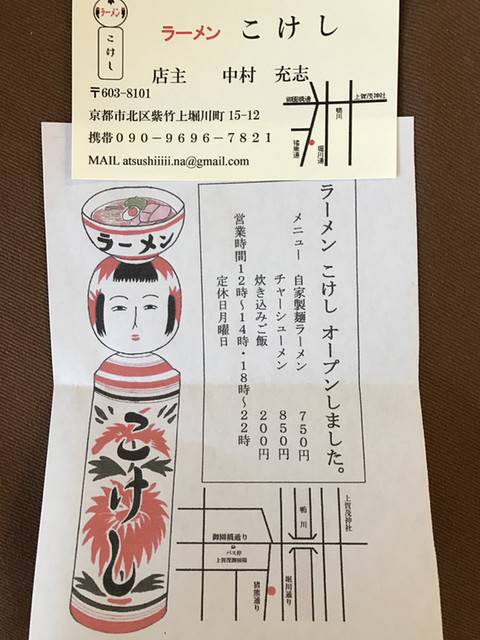 ラーメン
こけし
ラーメン こけし
店主 中村 充志
〒603-8101
京都市北区紫竹上堀川町15-12
携帯090-9696-7821
MAIL atsushiiiii.na@gmail.com
御園橋通
上賀茂神社
鴨川
猪熊通
堀川通
ラーメン こけし オープンしました。
メニュー 自家製麺ラーメン 750円
チャーシューメン 850円
炊き込みご飯 200円
営業時間12時〜14時・18時〜22時
定休日月曜日
ラーメン
こけし
上賀茂神社
鴨川
御園橋通り
バス停
上賀茂御園橋
猪熊通り
堀川通り